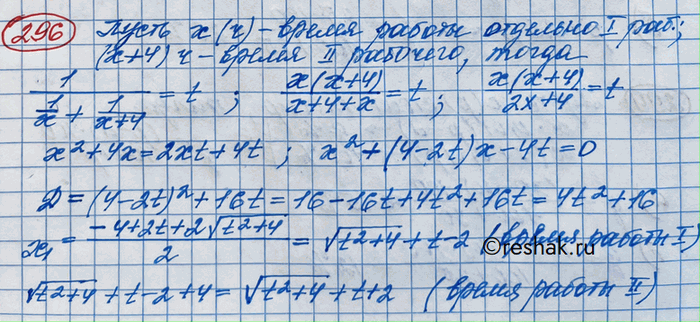 296 Пусть x (ч) - время работы отдельно I раб.;
(x+4) ч - время II рабочего, тогда
1/(1/x + 1/(x+4)) = t ; x(x+4)/(x+4+x) = t ; x(x+4)/(2x+4) = t
x²+4x=2xt+4t ; x²+(4-2t)x-4t=0
D=(4-2t)²+16t=16-16t+4t²+16t=4t²+16
x₁ = (-4+2t+2√(t²+4))/2 = √(t²+4)+t-2 (время работы I)
√(t²+4)+t-2+4=√(t²+4)+t+2 (время работы II)
reshak.ru